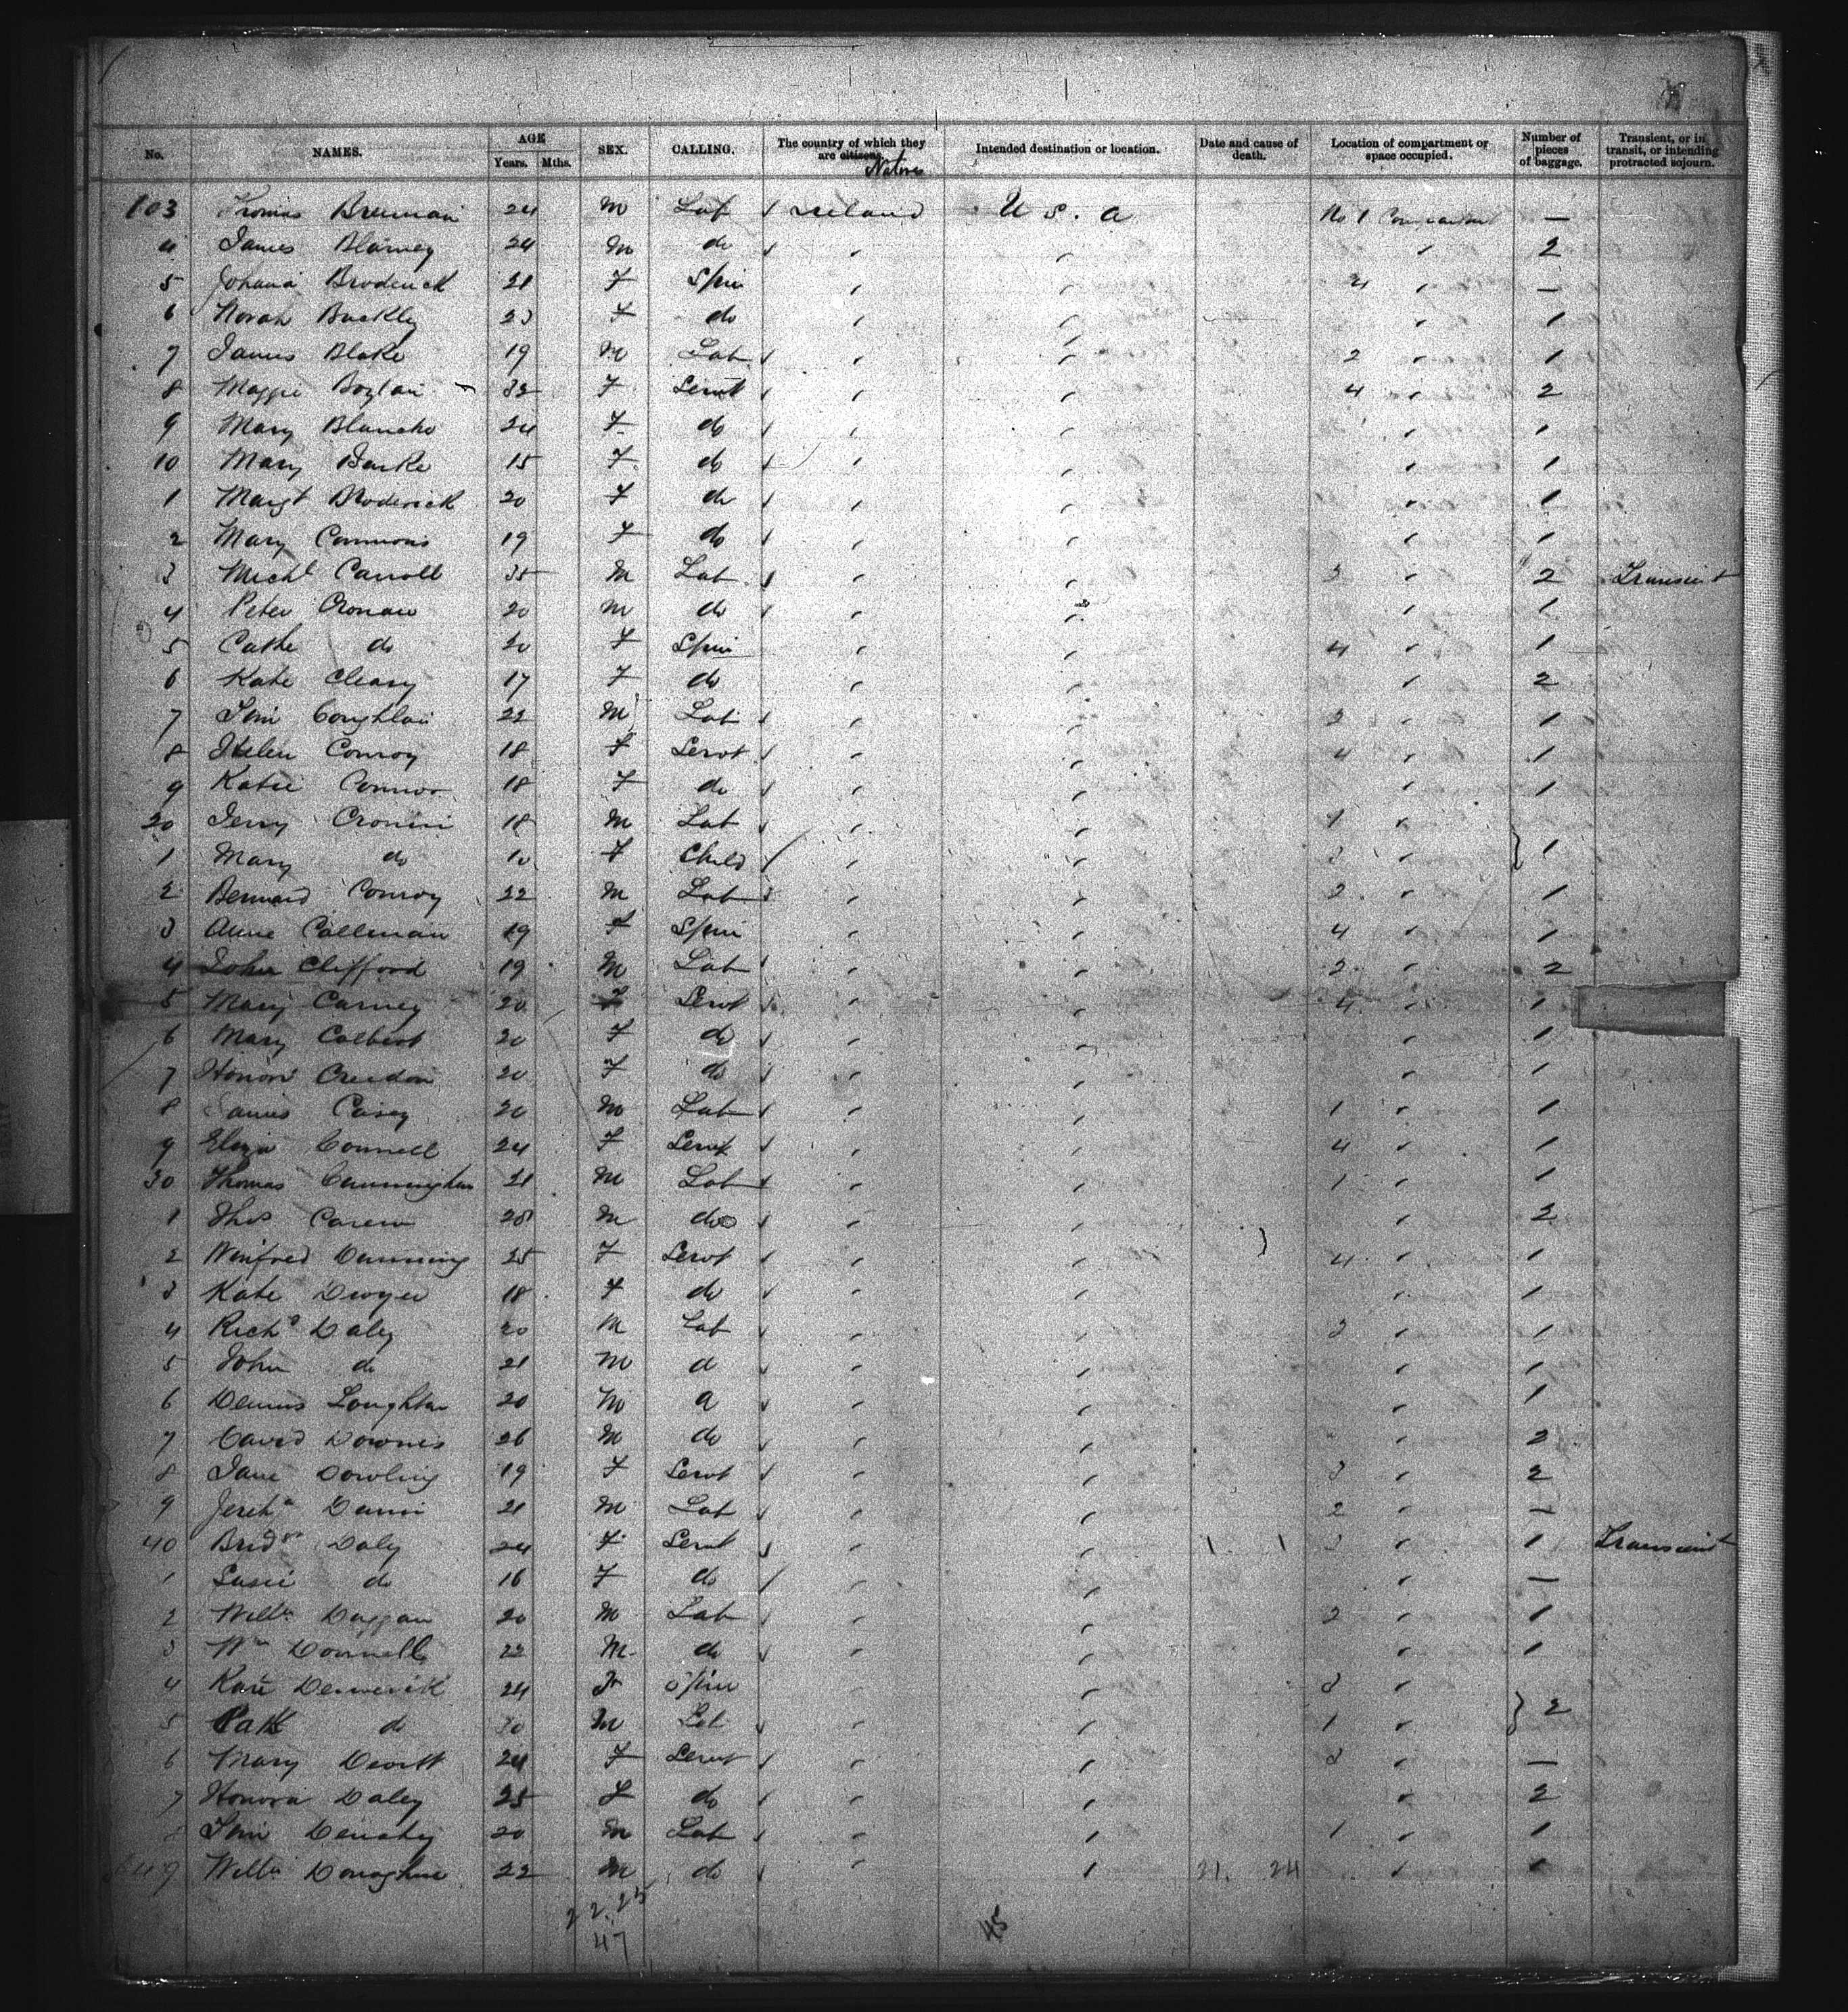 No. NAMES. AGE Years. Mths. SEX. CALLING. The country of which they are citizens. Natives Intended destination or location. Date and cause of death. Location of compartment or space occupied. Number of pieces of baggage. Transient, or in transit, or intending protracted sojourn.
103 Thomas Brennan 24 M Lab Ireland U S. a No 1 Compartment —
4 James Blarney 24 M do 2
5 Johana Broderick 21 F Spin 4 —
6 Norah Buckley 23 F do 1
7 James Blake 19 M Lab 2 1
8 Maggie Boylan 32 F Servt 4 2
9 Mary 24 F do 1
10 Mary Burke 15 F do 1
1 Margt Broderick 20 F do 1
2 Mary Commons 19 F do 1
3 Michl Carroll 35 M Lab 2 Transient
4 Peter Cronan 20 M do 1
5 Cathe do 20 F Spin 4 1
6 Kate Cleary 17 F do 2
7 Tim Coughlan 22 M Lab 2 1
8 Helen Conroy 18 F Servt 4 1
9 Katie Connor 18 F do 1
20 Jerry Cronin 18 M Lab 1
1 Mary do 10 F Child } 1
2 Bernard Conroy 22 M Lab 2 1
3 Anne Callenan 19 F Spin 4 1
4 John Clifford 19 M Lab 2 2
5 Mary Carney 20 F Servt 4 1
6 Mary Colbert 20 F do 1
7 Honor Creedon 20 F do 1
8 James Casey 20 M Lab 1 1
9 Eliza Connell 24 F Servt 4 1
30 Thomas Cunningham 21 M Lab 1 1
1 Thos Carew 28 M do 2
2 Winifred Dunning 25 F Servt 4 1
3 Kate Dwyer 18 F do 1
4 Richd Daley 20 M Lab 2 1
5 John do 21 M d 1
6 Dennis Loughlan 20 M 1
7 David Downes 26 M do 2
8 Jane Dowling 19 F Servt 3 2
9 21 M Lab 2 —
40 Bridgt Daly 24 F Servt 3 1 Transient
1 Susie do 16 F do —
2 Willm Duggan 20 M Lab 2 1
3 Wm Donnell 22 M do 1
4 24 F Spin 3
5 Patk do 30 M Lab 1 } 2
6 Mary Devitt 24 F Servt 3 —
7 Honora Daley 25 F do 2
8 Tim 20 M Lab 1 1
149 Willm Donoghue 22 M do 21. 24 1
22. 25
47 45